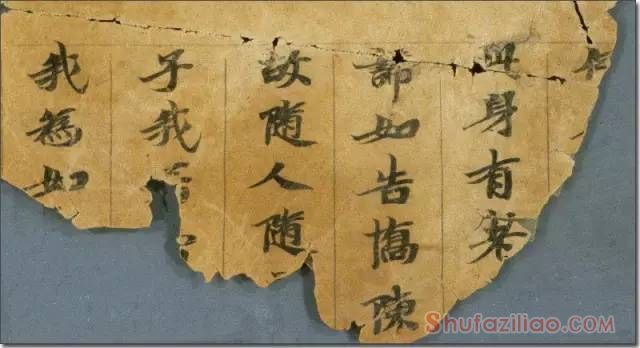 身有
諦如告憍陳
故随人随
子我
我為如
Shufaziliao.com